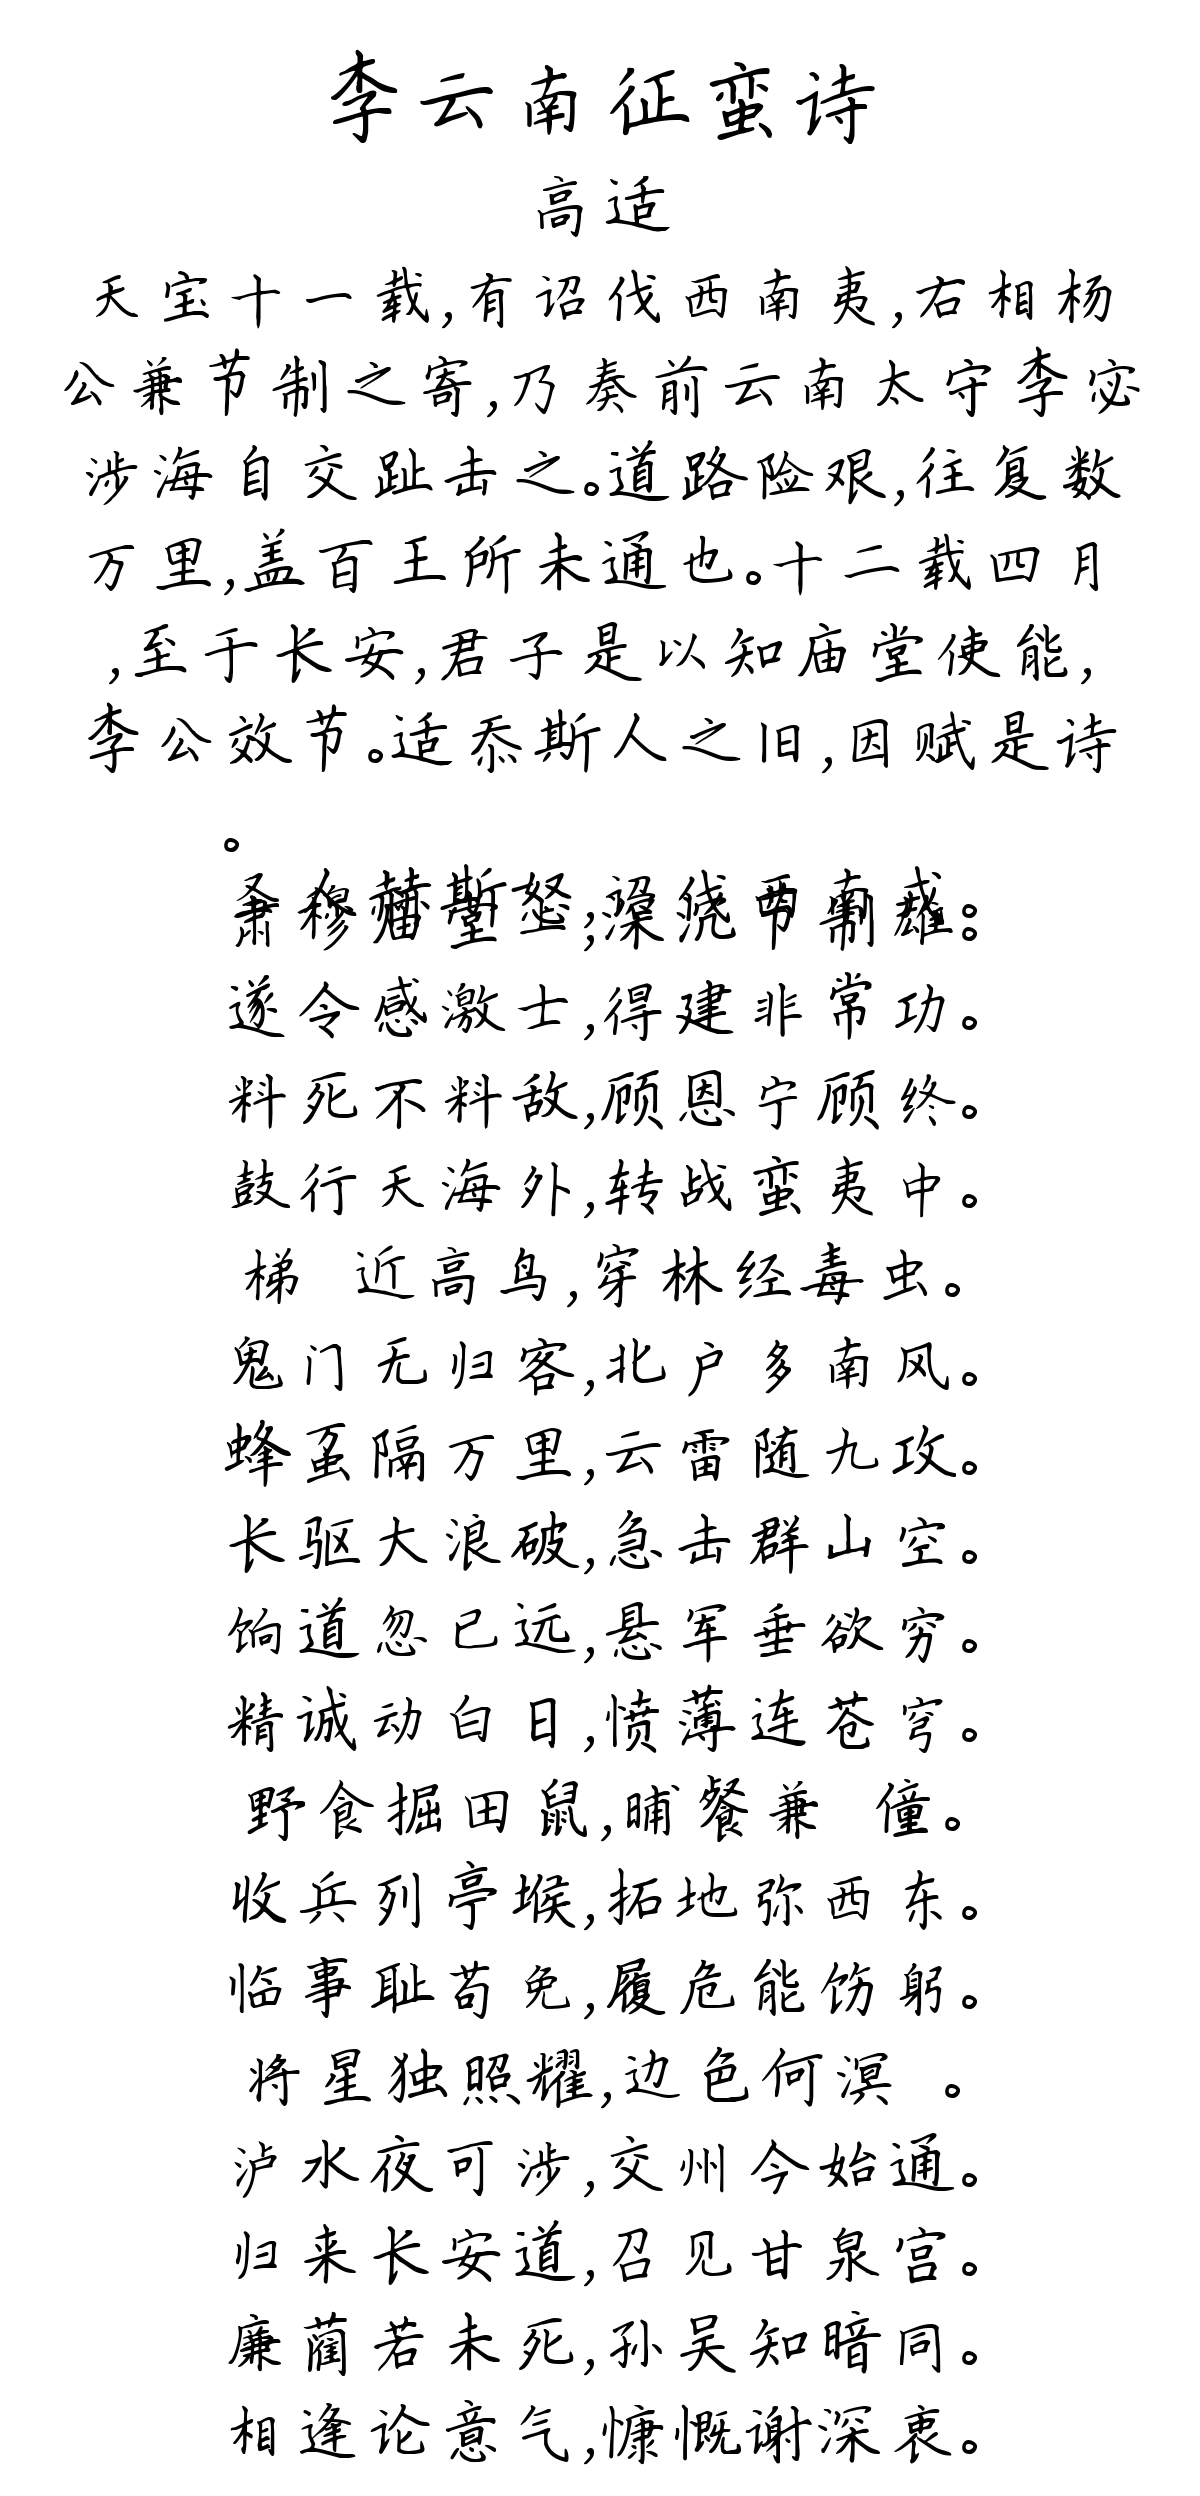 李云南征蛮诗
高适
天宝十一载,有诏伐西南夷,右相杨
公兼节制之寄,乃奏前云南太守李宓
涉海自交趾击之。道路险艰,往复数
万里,盖百王所未通也。十二载四月
,至于长安,君子是以知庙堂使能,
李公效节。适忝斯人之旧,因赋是诗
。
遂令感激士,得建非常功。
料死不料敌,顾恩宁顾终。
鼓行天海外,转战蛮夷中。
梯 近高鸟,穿林经毒虫。
鬼门无归客,北户多南风。
蜂虿隔万里,云雷随九攻。
长驱大浪破,急击群山空。
饷道忽已远,悬军垂欲穷。
精诚动白日,愤薄连苍穹。
野食掘田鼠,晡餐兼 僮。
收兵列亭堠,拓地弥西东。
临事耻苟免,履危能饬躬。
将星独照耀,边色何溟 。
泸水夜可涉,交州今始通。
归来长安道,召见甘泉宫。
廉蔺若未死,孙吴知暗同。
相逢论意气,慷慨谢深衷。